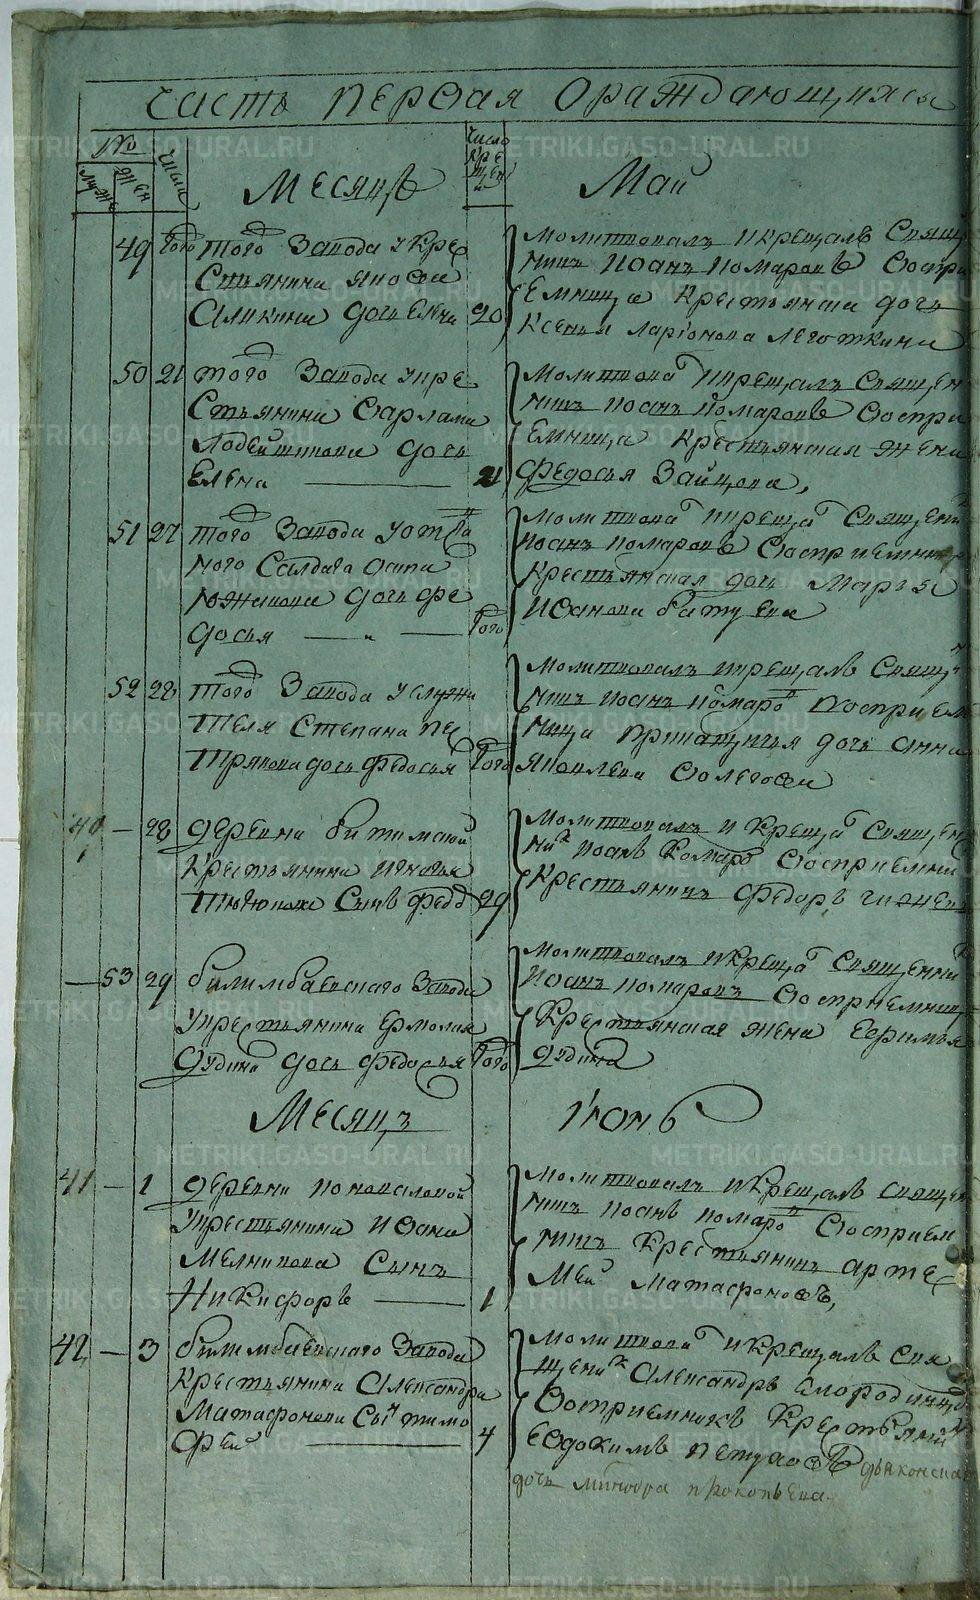 Часть первая ораждающихся
№
муж
жен
числа
Месяцъ
число креще
Май
49 того Завода у кре
стьянина якова
Аликина дочь Елена 20
Молитвовалъ и крещалъ свящ
никъ Иоанъ комаровъ воспри
емница крестьянская дочь
Ксенья Ларионова Леготкина
50 21 того Завода у кре
стьянина Варлама
дочь
Елена 21
Молитвова и крещалъ священ
никъ Иоанъ комаровъ воспри
емница крестьянская жена
Федосья Зайцова,
51 27 того Завода у отста
ного Салдата осипа
дочь фе
досья того
Молитвова и креща священ
Иоанъ комаровъ восприемница
крестьянская дочь Марья
Иванова батуева
52 28 того Завода у служи
теля Степана Пе
трякова дочь федосья того
Молитвовалъ и крещалъ свящ
никъ Иоанъ комаро восприем
ница прикащичья дочь Анна
Яковлева Волегова
40 — 28 деревни битимской
крестьянина
сынъ Федо 29
Молитвовалъ и креща священ
ник Иоанъ комаро восприемни
крестьянинъ Федоръ
— 53 29 билимбаевского Завода
у крестьянина Ермолая
дудина дочь федосья того
Молитвовалъ и креща священни
Иоанъ комаровъ восприемница
крестьянская жена Евфимья
дудина
Месяцъ
июнь
41 — 1 деревни коноваловой
у крестьянина Ивана
Мелникова сынъ
Никифоръ 1
Молитвовалъ и крещалъ священ
никъ Иоанъ комаро восприем
никъ крестьянинъ арте
мей Матафоновъ,
42 — 3 билимбаевского Завода
крестьянина Александра
Матафонова сы тимо
фей 4
Молитвова и крещалъ свя
щеник Александръ Смородинцо
восприемникъ крестьянин
Евдокимъ петуховъ дьяконска
дочь прокопьева.